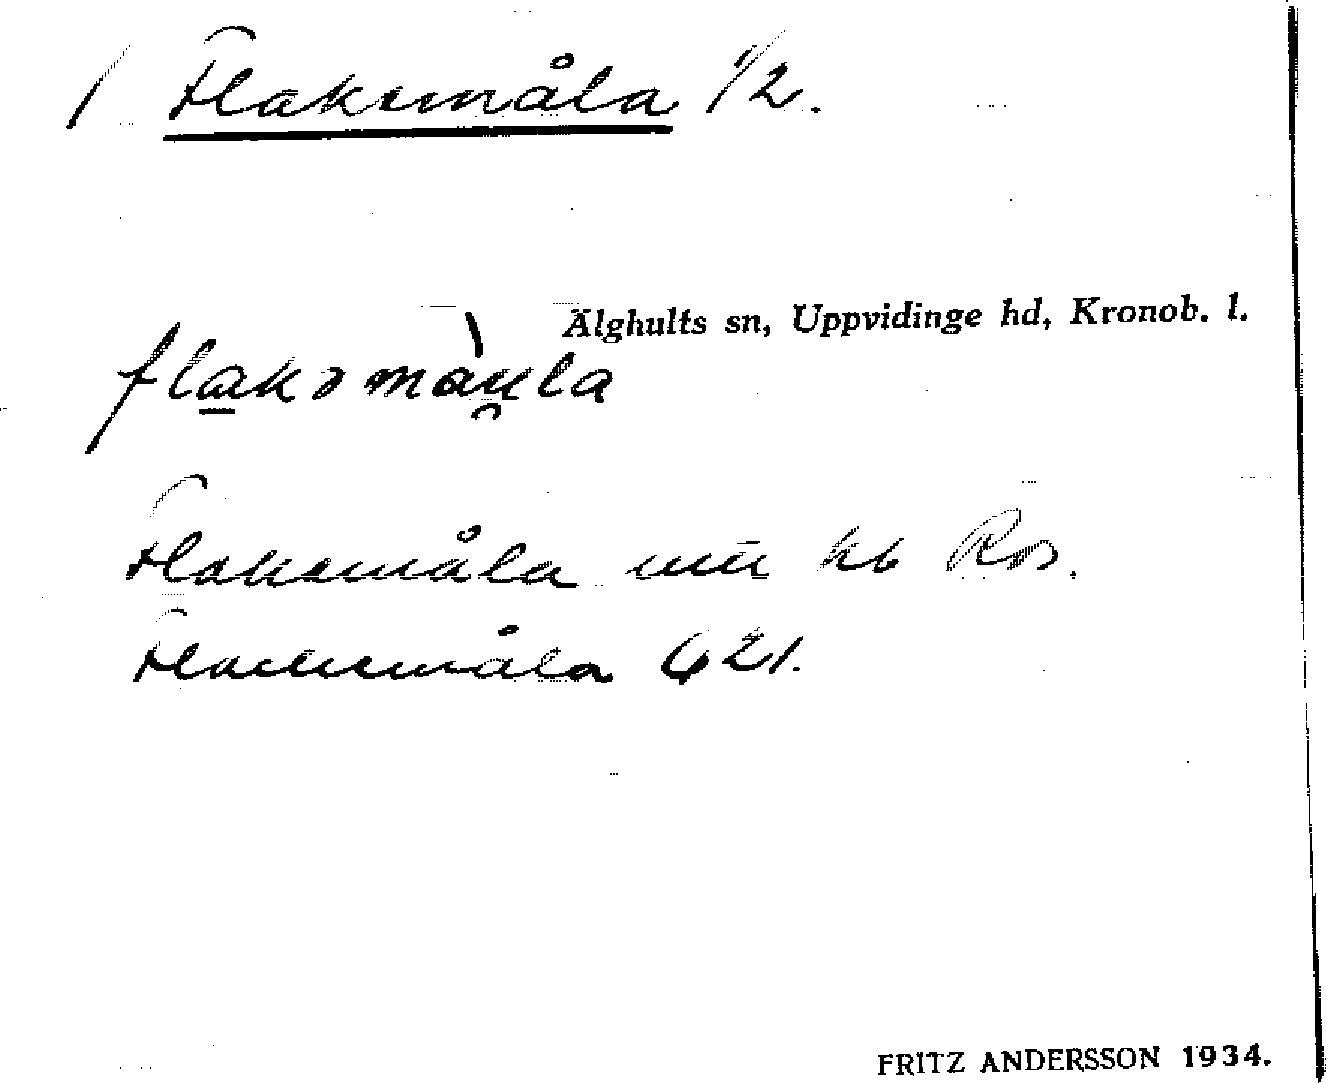 / Flaksmåla 1/2.
Älghults sn, Uppvidinge hd, Kronob. l.
flaksmàu̯la
Flaksmåla hb Ros.
Flaksmåla G 21.
FRITZ ANDERSSON 1934.